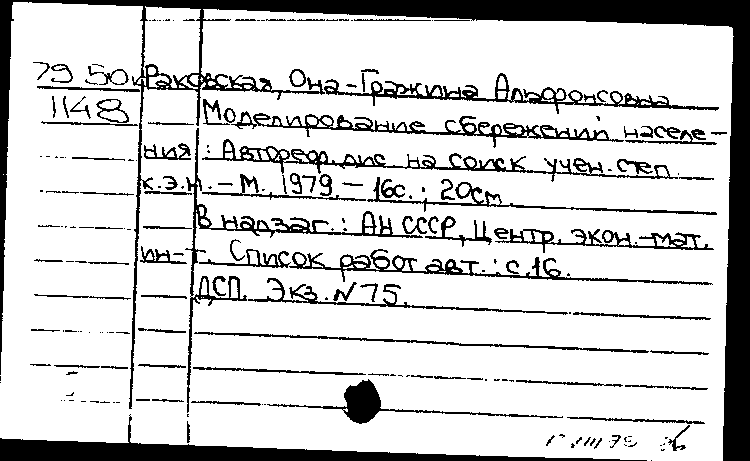 79 50и Раковская, Она-Гражина Альфонсовна
1148 Моделирование сбережений населе-
ния : Автореф. дис. на соиск. учен. степ.
к.э.н. - М., 1979. - 16с. ; 20см.
В надзаг. : АН СССР, Центр. экон.-мат.
ин-т. Список работ авт. : с.16.
ДСП. Экз. N 75.